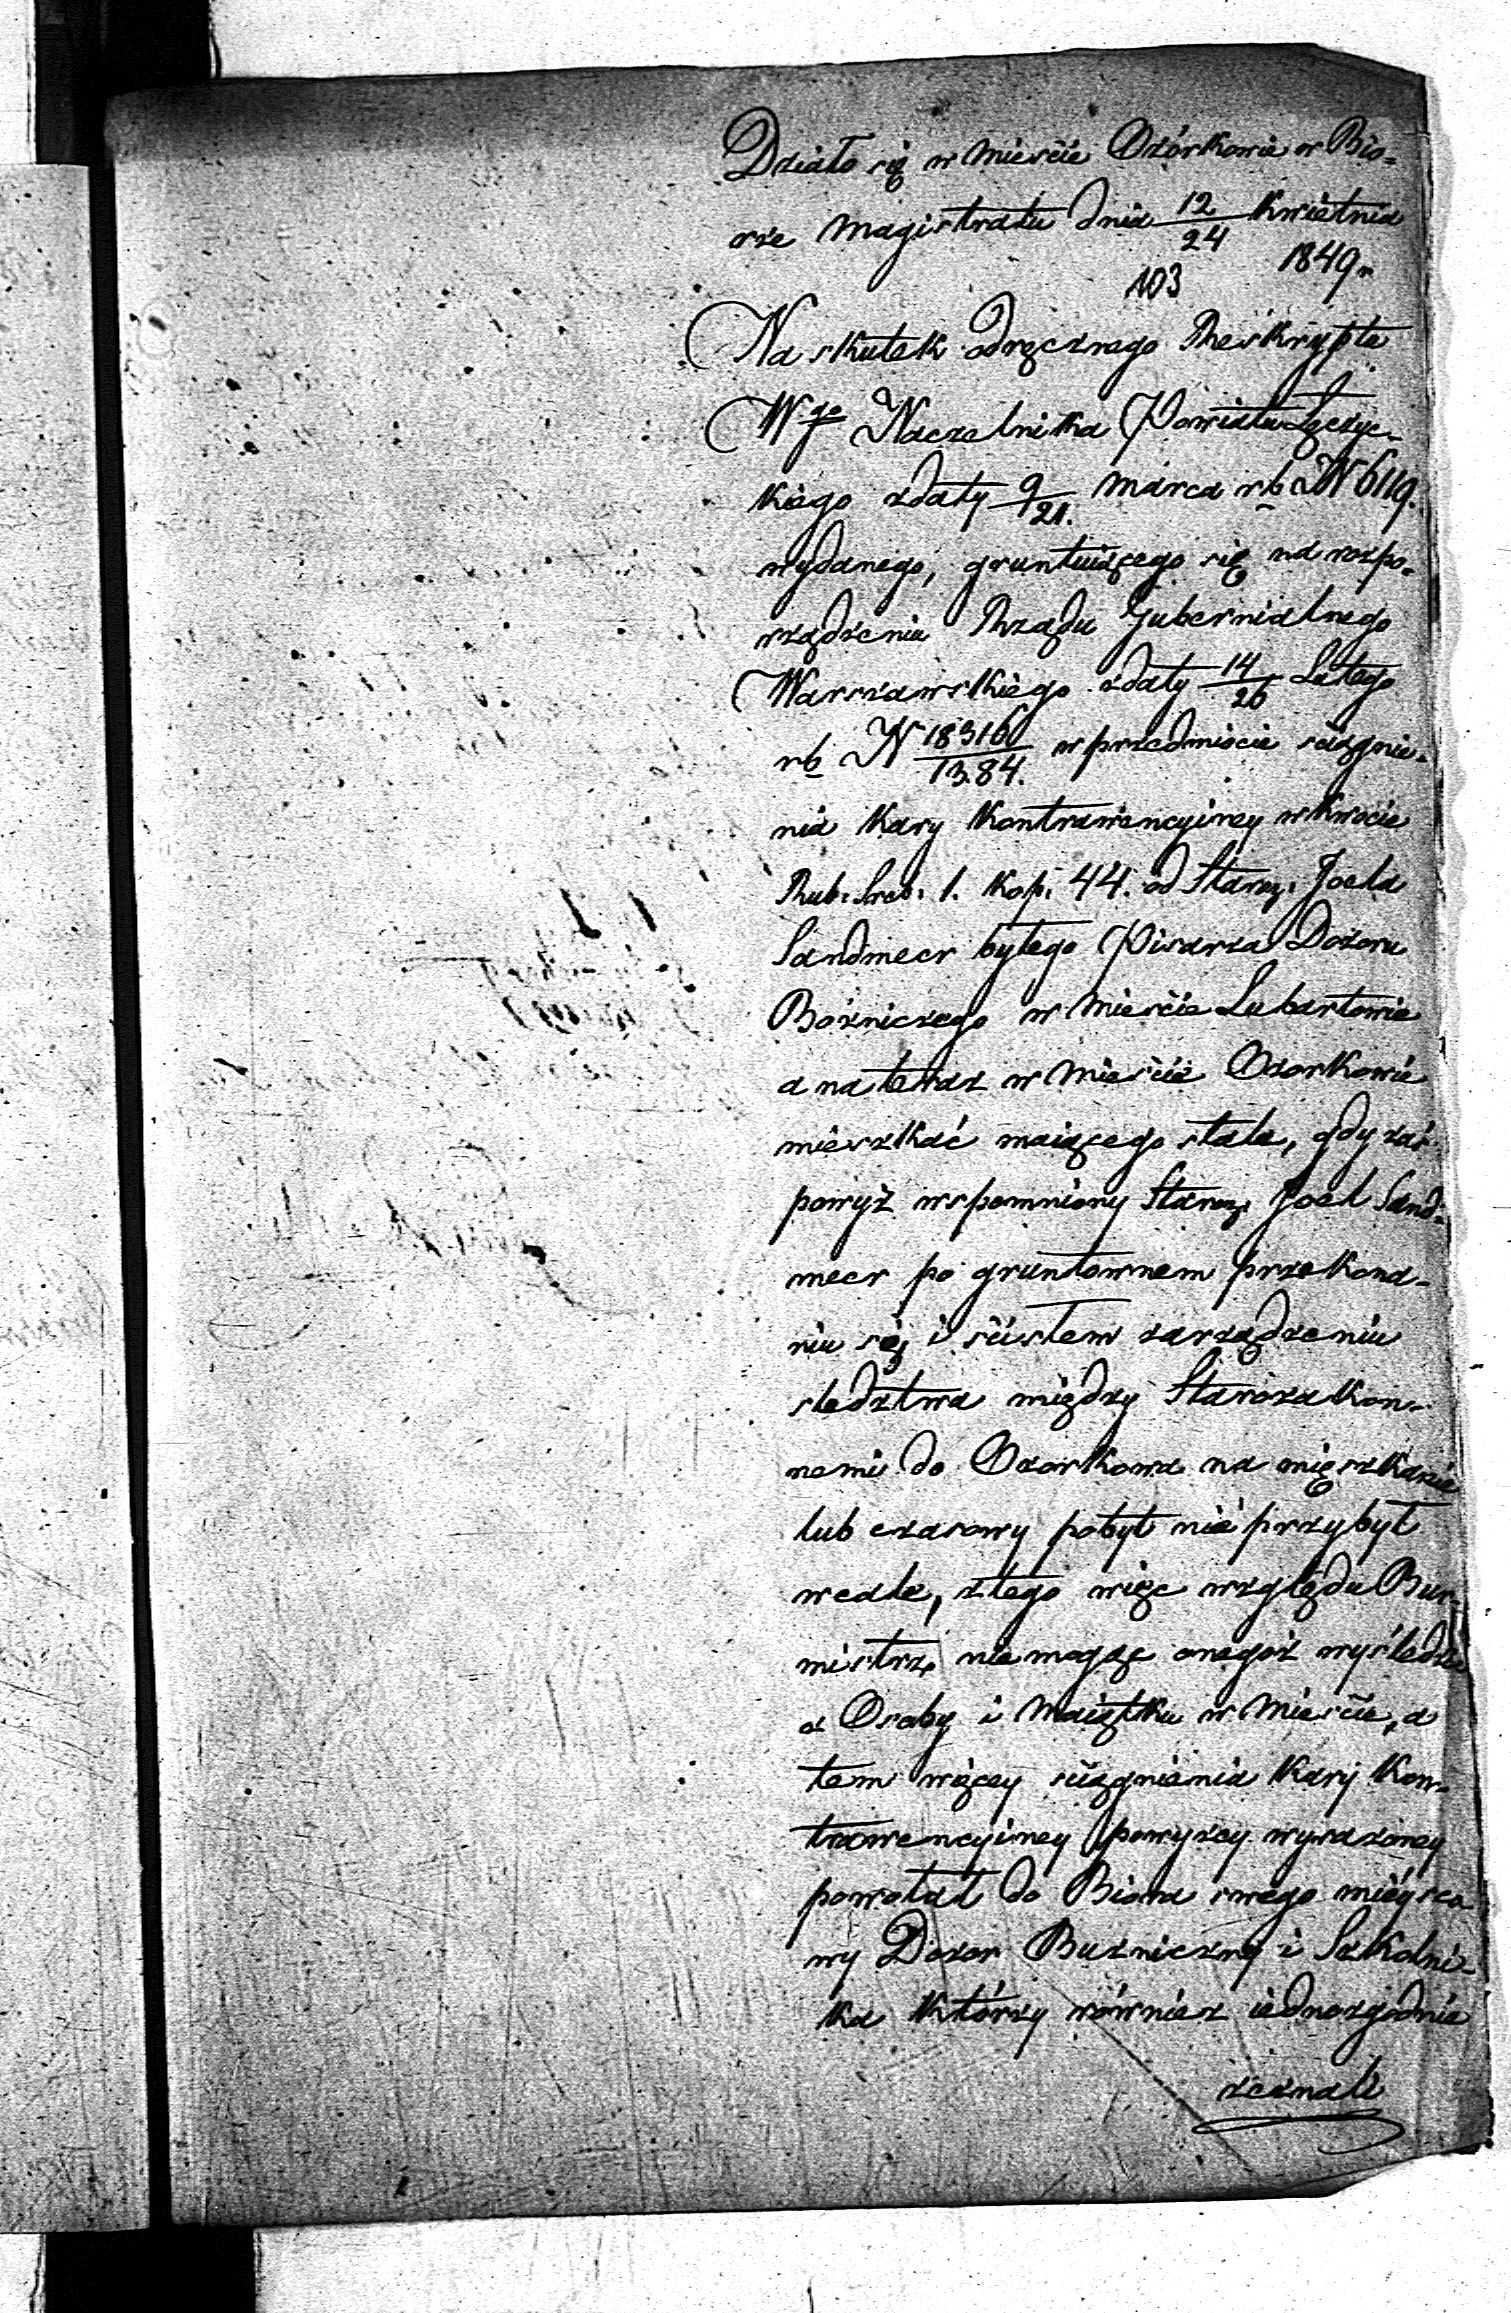 Działo się w Mieście Ozórkowie w Bio-
rze Magistratu dnia 12/24 Kwietnia
1849 r
103
Na skutek odręcznego Reskryptu
Wgo Naczelnika Powiatu Łęczyc-
kiego z daty 9/21. Marca rb N 6119.
wydanego, gruntuiącego się na rozpo-
rządzeniu Rządu Gubernialnego
Warszawskiego z daty 14/26 Lutego
rb N 18316/13.84. w przedmiocie sciągnie-
nia Kary Kontrawencyiney w kwocie
Rub. Sreb. 1. Kop. 44. od Staroz. Joela
Sandmecr byłego Pisarza Dozoru
Bóżniczego w Mieście Lubartowie
a na teraz w Mieście Ozorkowie
mieszkać maiącego stale, gdy zaś
powyż wspomniony Staroz. Joel Sand-
mecr po gruntownem przekona-
niu się i scisłem zarządzeniu
sledztwa między Starozakon-
nemi do Ozorkowa na mięszkanie
lub czasowy pobyt nie przybył
wcale, z tego więc względu Bur-
mistrz nie mogąc onegoż wyśledzić
z Osoby i Maiątku w Mieście, a
tem więcey sciągnienia Kary Kon-
trawencyiney powyżey wyrażoney
powołał do Biora swego mieysco-
wy Dozor Bużniczny i Szkolni-
ka którzy również iednozgodnie
zeznali